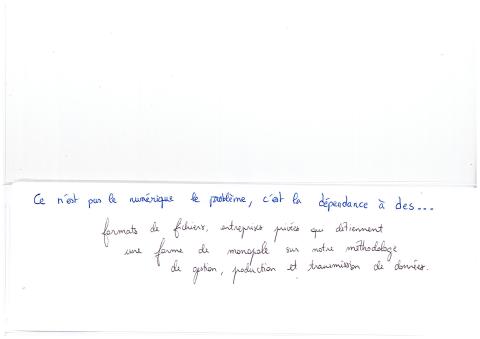 Ce n'est pas le numérique le problème, c'est la dépendance à des...
formats de fichiers, entreprises privées qui détiennent
une forme de monopole sur notre méthodologie
de gestion, production et transmission de données.